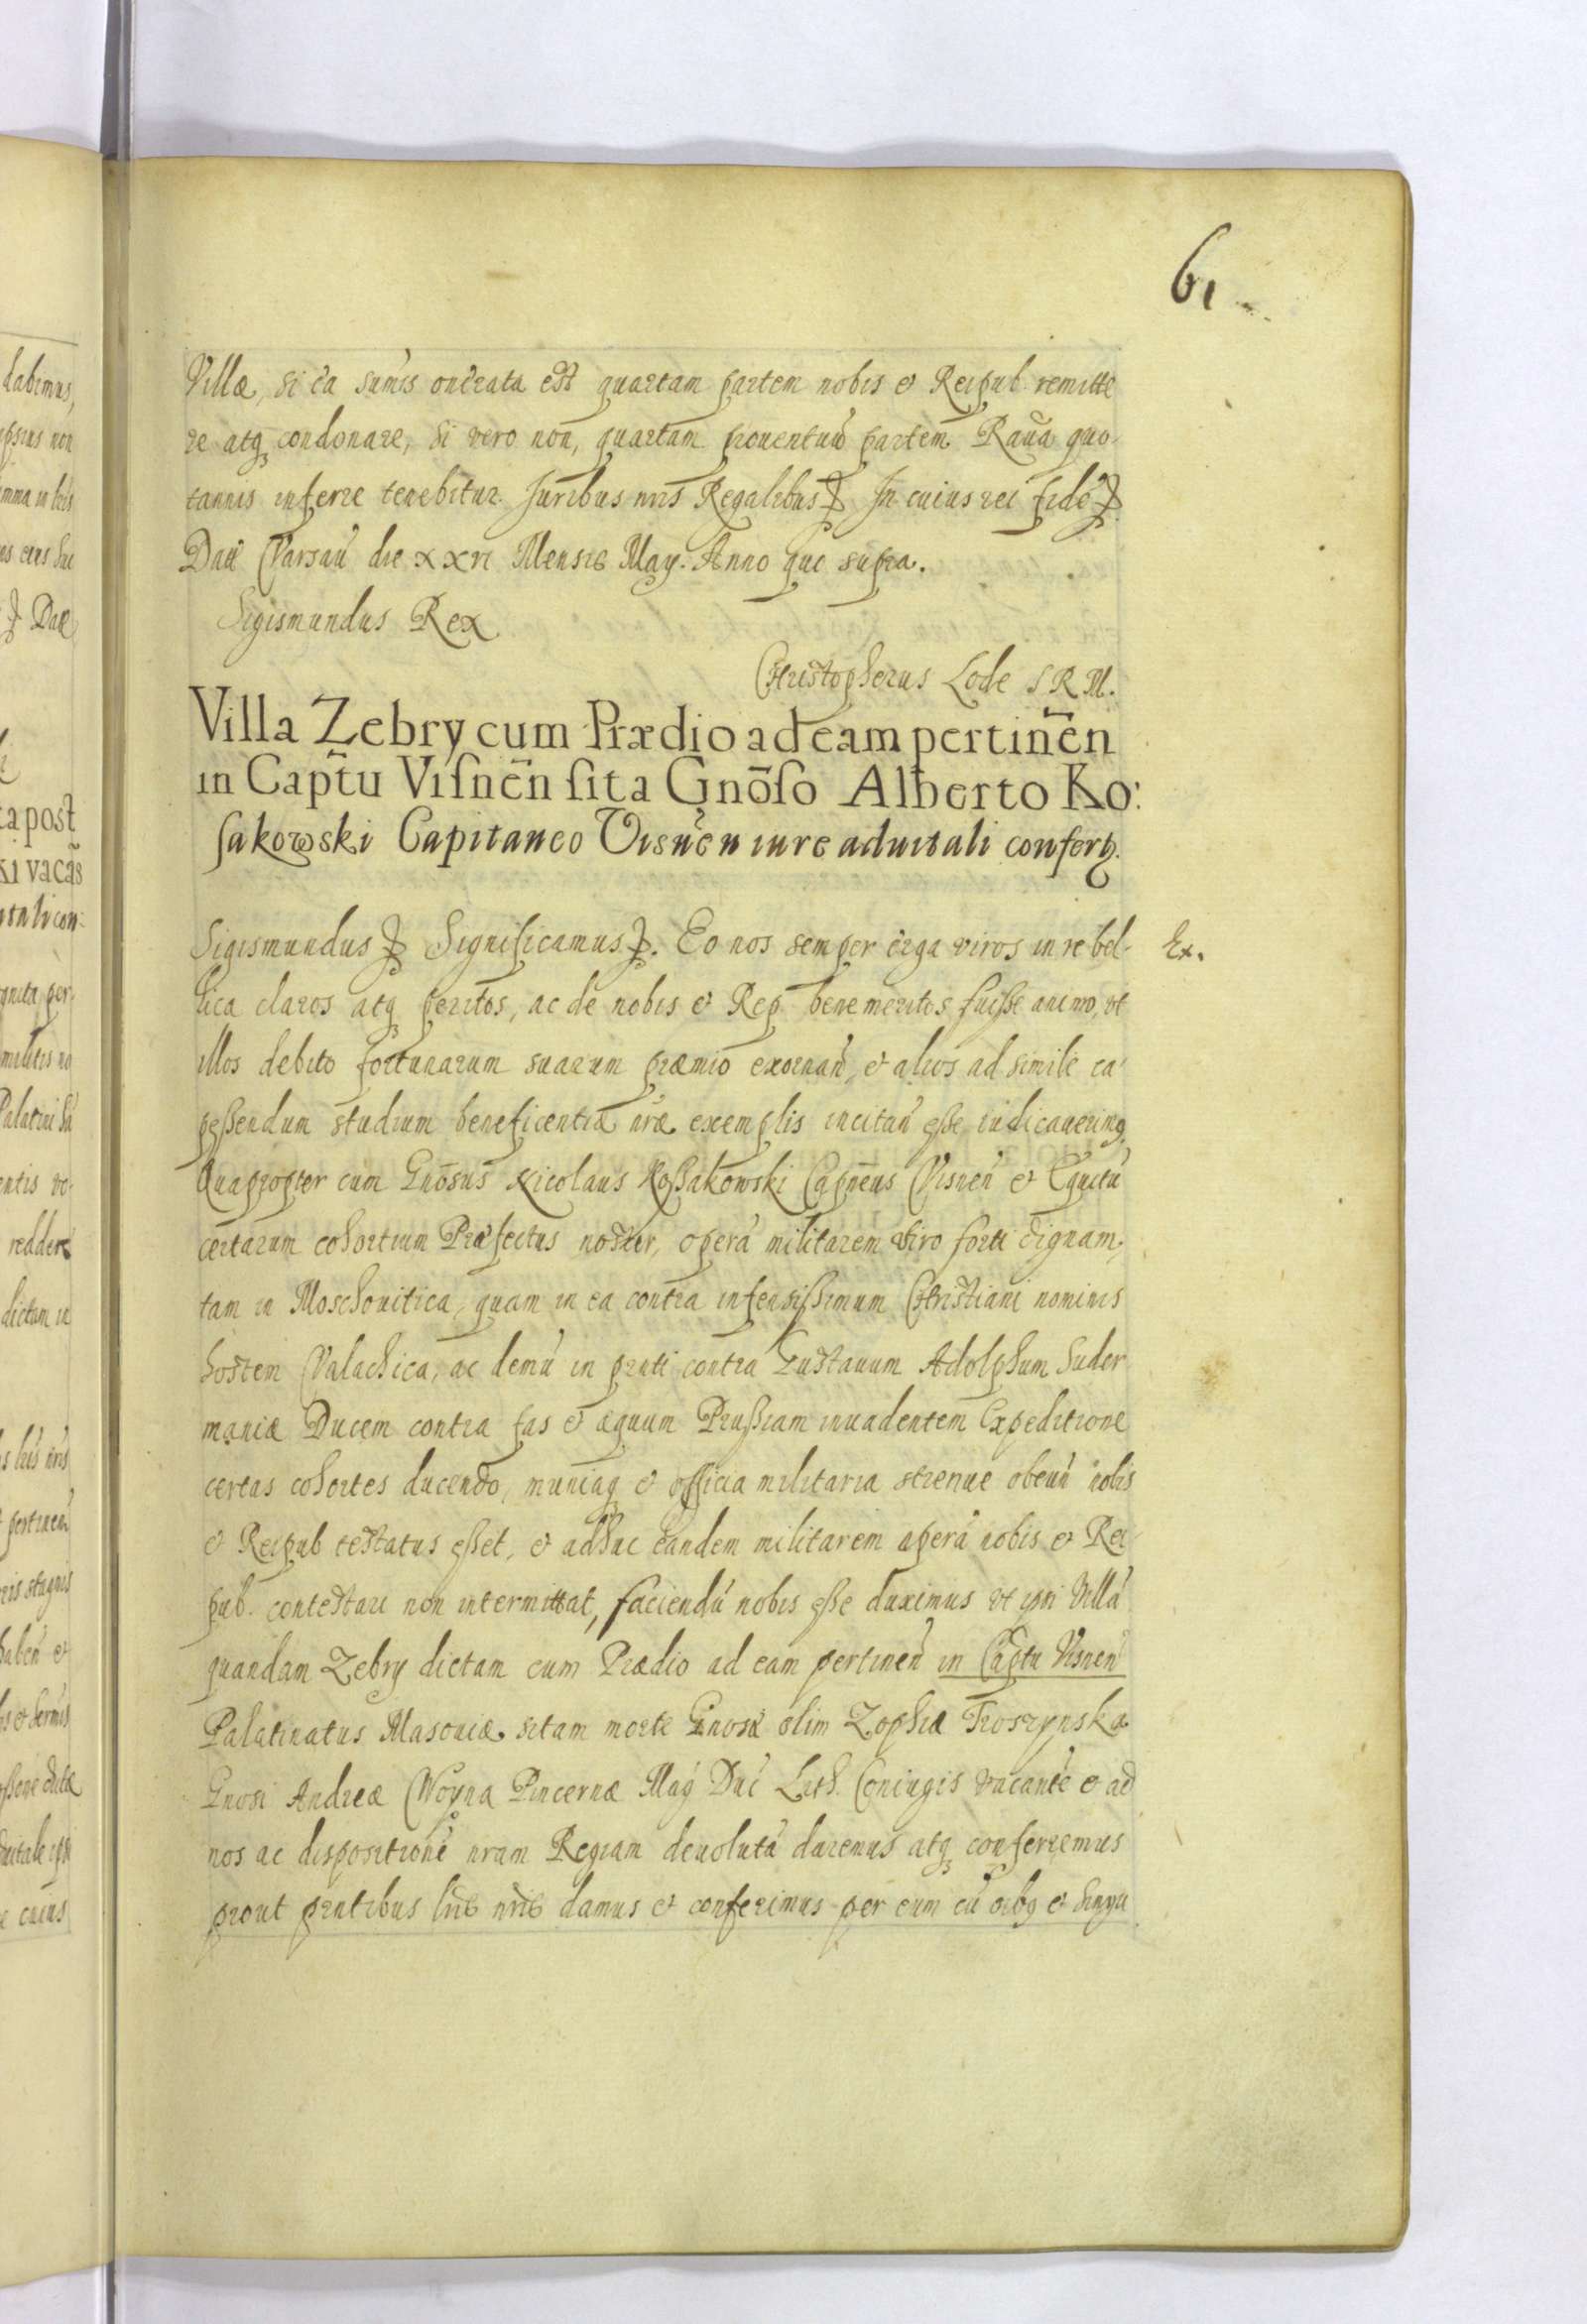 61
Villæ, si ea sum̃is onerata est quartam partem nobis et Reipub. remitte
re atq condonare, si vero non, quartam prouentuũ partem Rauã quo-
tannis inferre tenebitur. Juribus nr̃is Regalibus In cuius rei fidẽ
Dat̃ Varsaũ die XXVI Mensis Maÿ. Anno quo supra.
Sigismundus Rex
Christopherus Lode S R M.
Villa Zebry cum Prædio ad eam pertineñ
in Capt̃u Visneñ sita Gnõso Alberto Ko:
sakowski Capitaneo Visneñ iure aduitali confert.
Sigismundus Significamus. Eo nos semper erga viros in re bel-
Ex.
lica claros atq peritos, ac de nobis et Rep. bene meritos fuisse animo, vt
illos debito fortunarum suarum præmio exornañ, et alios ad simile ca-
pessendum studium beneficentiæ nr̃æ exemplis incitañ esse iudicauerimq
Quapropter cum Gnõsus Nicolaus Kossakowski Capñeus Visneñ et Equitũ
certarum cohortium Præfectus noster, operã militarem viro forti dignam,
tam in Moschouitica, quam in ea contra infensissimum Christiani nominis
hostem Valachica, ac demũ in pñti contra Gustauum Adolphum Suder
maniæ Ducem contra fas et æquum Prussiam inuadentem Expeditione
certas cohortes ducendo, muniaq et officia militaria strenue obeuñ nobis
et Reipub testatus esset, et adhuc eandem militarem operã nobis et Rei
pub. contestari non intermittat, faciendũ nobis esse duximus vt ipsi Villã
quandam Zebry dictam cum Prædio ad eam pertineñ in Captu Visneñ
Palatinatus Masouiæ sitam morte Gnosæ olim Zophiæ Troszynska
Gnosi Andreæ Woyna Pincernæ Mag Duc Lith. Coniugis vacantẽ et ad
nos ac dispositionẽ nram Regiam deuolutã daremus atq conferremus
prout pñtibus lr̃is nr̃is damus et conferimus per eum cũ oĩbq et singu